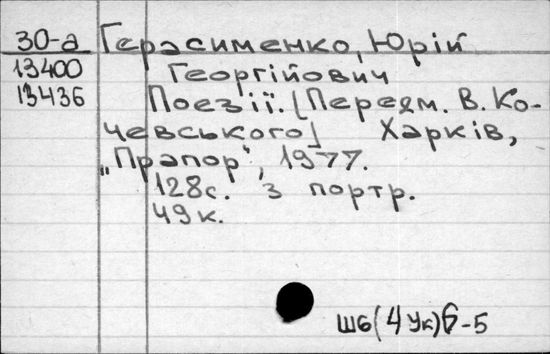 30-а Герасименко, Юрій
13400 Георгійович
13436 Поезії. [Передм. В. Ко-
чевського] Харків,
„Прапор", 1977.
128с. з портр.
49к.
Ш6(4Ук)6-5